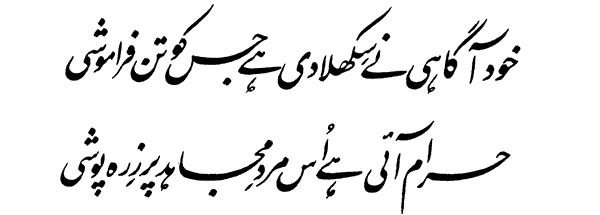 خود آگاہی نے سِکھلا دی ہے جس کو تن فراموشی
حرام آئی ہے اُس مردِ مجاہد پر زِرہ پوشی